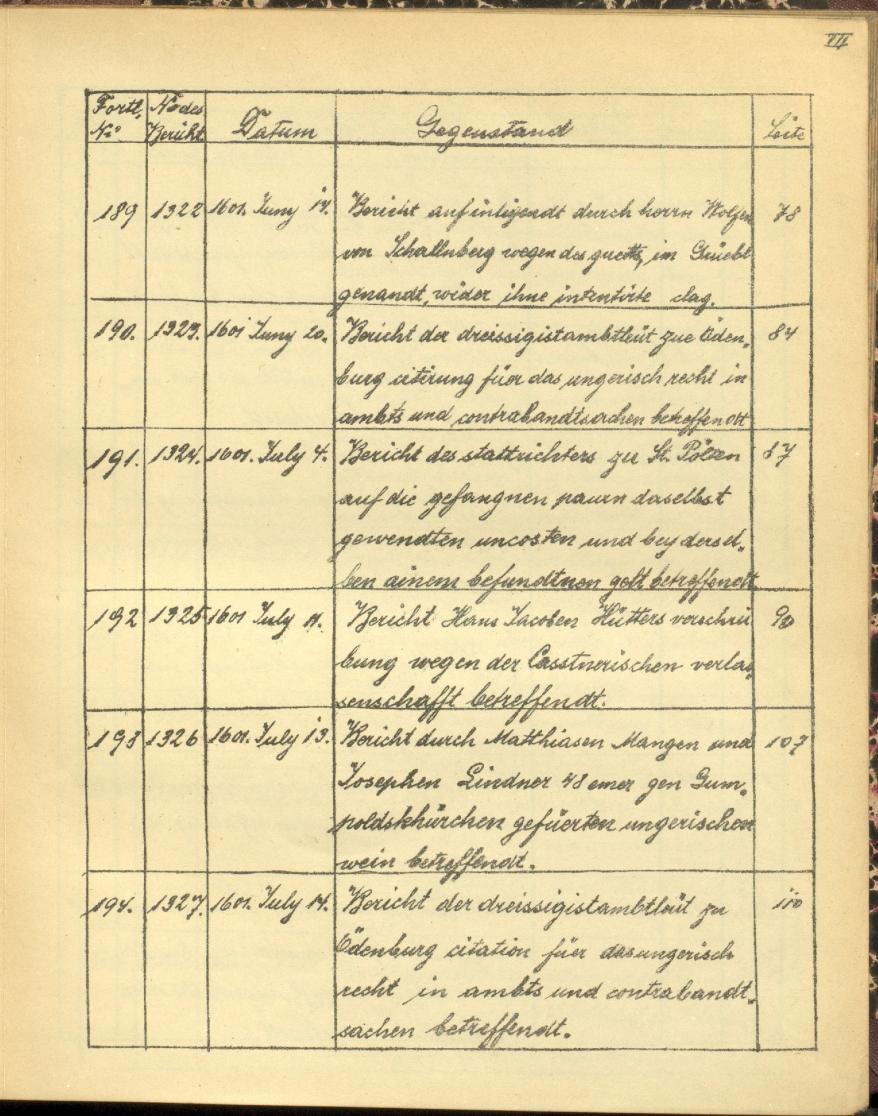 VII
Fortl. No des Datum Gegenstand Seite
No. Bericht
189 1322 1601. Juny 14. Bericht auf inligendt durch herrn Wolfen 78
von Schallnberg wegen des guetts, im Grüebl
genandt, wider ihne intentirte clag.
190. 1323. 1601 Juny 20. Bericht der dreissigistambtleüt zue Öden„ 84
burg citirung füer das ungerisch recht in
ambts und contrabandtsachen betreffendt
191. 1324. 1601. July 4. Bericht des stattrichters zu St. Pölten 87
auf die gefangnen paurn daselbst
gewendten uncosten und bey dersel„
ben ainem befundtnen gelt betreffendt.
192 1325 1601 July 11. Bericht Hans Jacoben Hütters verschrei
bung wegen der Casstnerischen verlas„ 90
senschafft betreffendt.
193 1326 1601. July 13. Bericht durch Matthiasen Mangen und 107
Josephen Lindner 48 emer gen Gum„
poldskhürchen gefüerten ungerischen
wein betreffendt.
194. 1327. 1601. July 14. Bericht der dreissigistambtleüt zu 110
Ödenburg citation füer das ungerisch
recht in ambts und contrabandt„
sachen betreffendt.